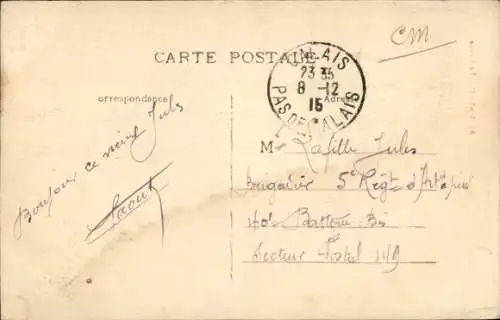 CM
CARTE POSTALE
CALAIS
23 35
8 -12
15
PAS DE CALAIS
Correspondance
Adresse
Bonjour ce
Jules
M Jules
Brigadier 5e Régt d'Art à pied
40e Batterie Bis
Secteur Postal 149